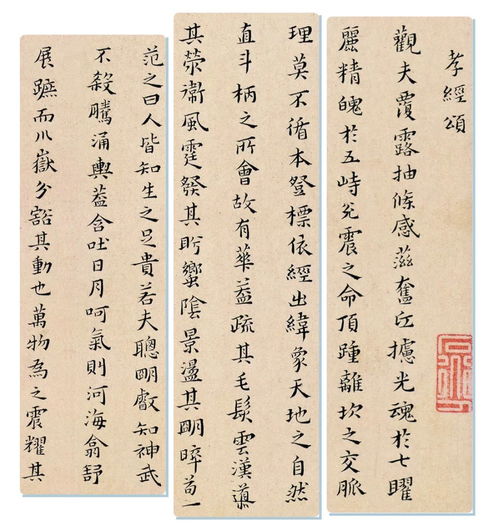 孝經頌
觀夫覆露抽條感滋奮丘攄光魂於七曜
麗精魄於五峙兌震之命頂踵離坎之交脈
理莫不循本登標依經出緯象天地之自然
直斗柄之所會故有華葢疏其毛髮雲漢導
其榮衞風霆發其肸蠁陰景盪其明晬苟一
范之曰人皆知生之足貴若夫聰明叡知神武
不殺騰涌輿葢含吐日月呵氣則河海翕舒
展蹠而川嶽分豁其動也萬物為之震耀其